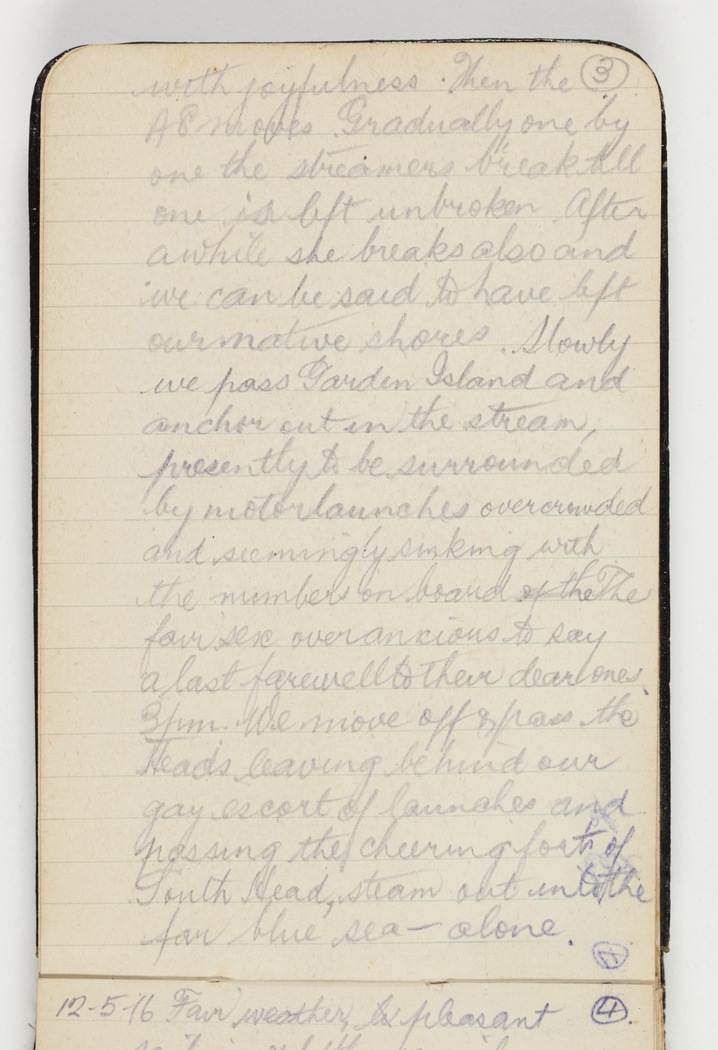 with joyfulness. Then the ③
A8 moves. Gradually one by
one the streamers break till
one is left unbroken. After
awhile she breaks also and
we can be said to have left
our native shores. Slowly
we pass Garden Island and
anchor out in the stream,
presently to be surrounded
by motor launches overcrowded
and seemingly sinking with
the numbers on board of the The
fair sex over anxious to say
a last farewell to their dear ones.
3pm. We move off & pass the
Heads leaving behind our
gay escort of launches and
passing the cheering forts of
South Head, steam out into the
far blue sea — alone.
12-5-16 Fair weather, & pleasant ④.